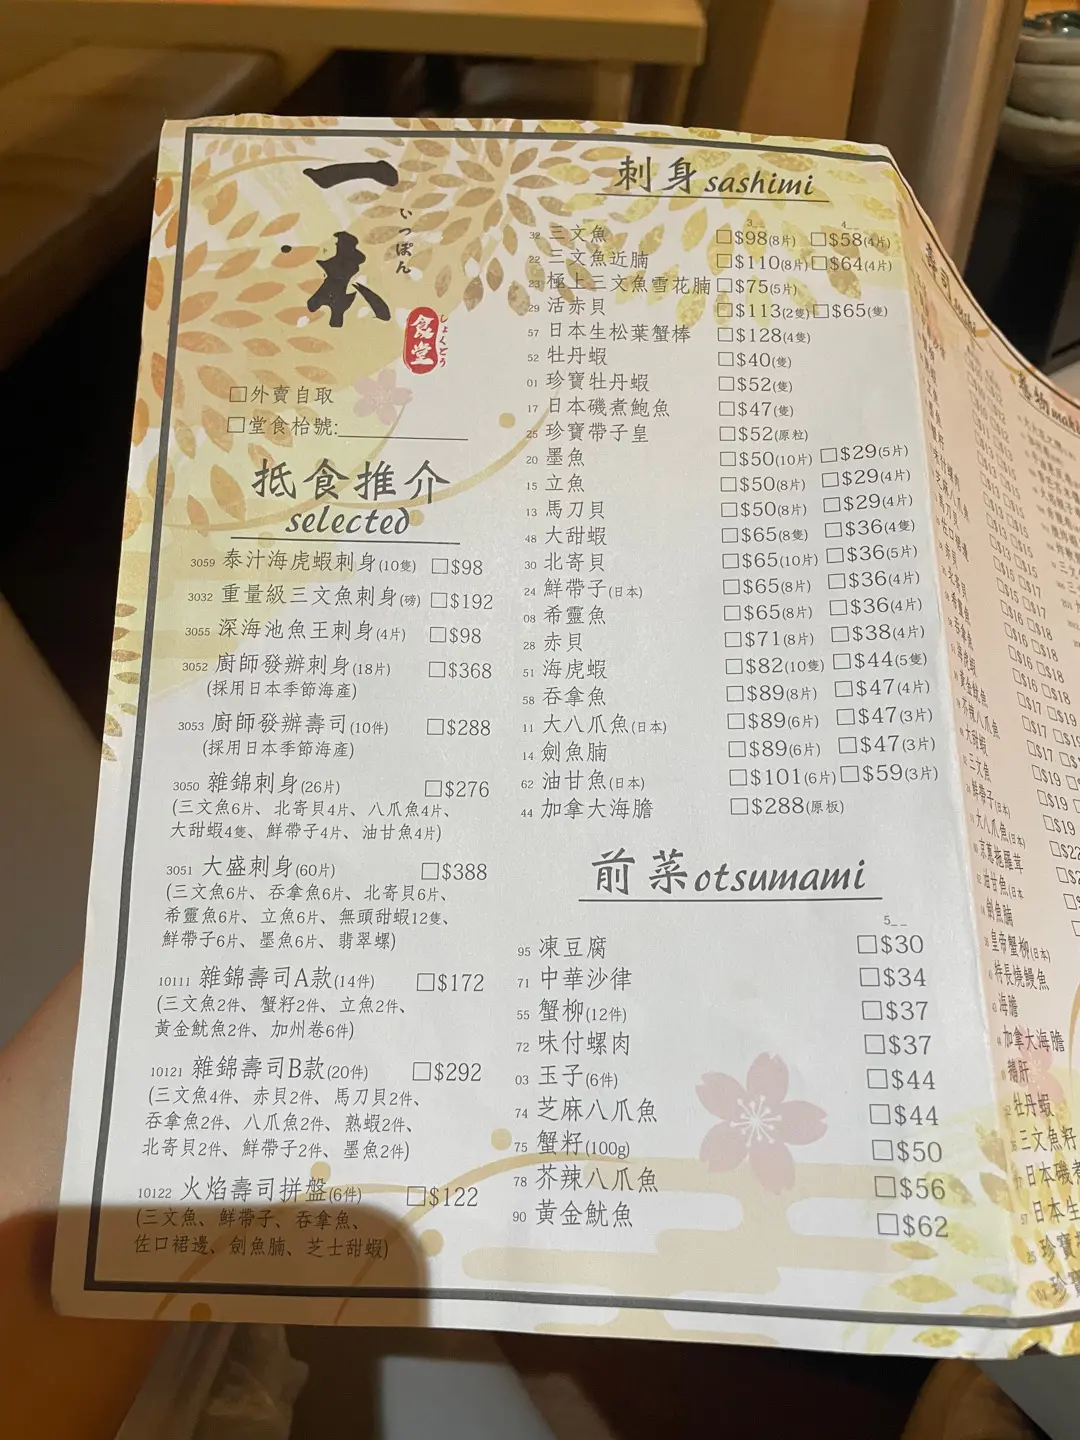 一本
いっぽん
食堂
しょくどう
□外賣自取
□堂食枱號:
抵食推介
selected
3059 泰汁海虎蝦刺身(10隻) □$98
3032 重量級三文魚刺身(磅) □$192
3055 深海池魚王刺身(4片) □$98
3052 廚師發辦刺身(18片) □$368
(採用日本季節海產)
3053 廚師發辦壽司(10件) □$288
(採用日本季節海產)
3050 雜錦刺身(26片) □$276
(三文魚6片、北寄貝4片、八爪魚4片、
大甜蝦4隻、鮮帶子4片、油甘魚4片)
3051 大盛刺身(60片) □$388
(三文魚6片、吞拿魚6片、北寄貝6片、
希靈魚6片、立魚6片、無頭甜蝦12隻、
鮮帶子6片、墨魚6片、翡翠螺)
10111 雜錦壽司A款(14件) □$172
(三文魚2件、蟹籽2件、立魚2件、
黃金魷魚2件、加州卷6件)
10121 雜錦壽司B款(20件) □$292
(三文魚4件、赤貝2件、馬刀貝2件、
吞拿魚2件、八爪魚2件、熟蝦2件、
北寄貝2件、鮮帶子2件、墨魚2件)
10122 火焰壽司拼盤(6件) □$122
(三文魚、鮮帶子、吞拿魚、
佐口裙邊、劍魚腩、芝士甜蝦)
刺身 sashimi
3__ 4__
32 三文魚 □$98(8片) □$58(4片)
22 三文魚近腩 □$110(8片) □$64(4片)
23 極上三文魚雪花腩 □$75(5片)
29 活赤貝 □$113(2隻) □$65(隻)
57 日本生松葉蟹棒 □$128(4隻)
52 牡丹蝦 □$40(隻)
01 珍寶牡丹蝦 □$52(隻)
17 日本磯煮鮑魚 □$47(隻)
25 珍寶帶子皇 □$52(原粒)
20 墨魚 □$50(10片) □$29(5片)
15 立魚 □$50(8片) □$29(4片)
13 馬刀貝 □$50(8片) □$29(4片)
48 大甜蝦 □$65(8隻) □$36(4隻)
30 北寄貝 □$65(10片) □$36(5片)
24 鮮帶子(日本) □$65(8片) □$36(4片)
08 希靈魚 □$65(8片) □$36(4片)
28 赤貝 □$71(8片) □$38(4片)
51 海虎蝦 □$82(10隻) □$44(5隻)
58 吞拿魚 □$89(8片) □$47(4片)
11 大八爪魚(日本) □$89(6片) □$47(3片)
14 劍魚腩 □$89(6片) □$47(3片)
62 油甘魚(日本) □$101(6片) □$59(3片)
44 加拿大海膽 □$288(原板)
前菜 otsumami
5__
95 凍豆腐 □$30
71 中華沙律 □$34
55 蟹柳(12件) □$37
72 味付螺肉 □$37
03 玉子(6件) □$44
74 芝麻八爪魚 □$44
75 蟹籽(100g) □$50
78 芥辣八爪魚 □$56
90 黃金魷魚 □$62
壽司 sushi
黃金魷魚
芥辣八爪魚
大甜蝦
三文魚
鮮帶子(日本)
大八爪魚(日本)
油甘魚(日本
劍魚腩
皇帝蟹柳(日本)
特長燒鰻魚
海膽
加拿大海膽
鵝肝
牡丹蝦
三文魚籽
日本磯煮
日本生
珍寶
珍寶
卷物 maki